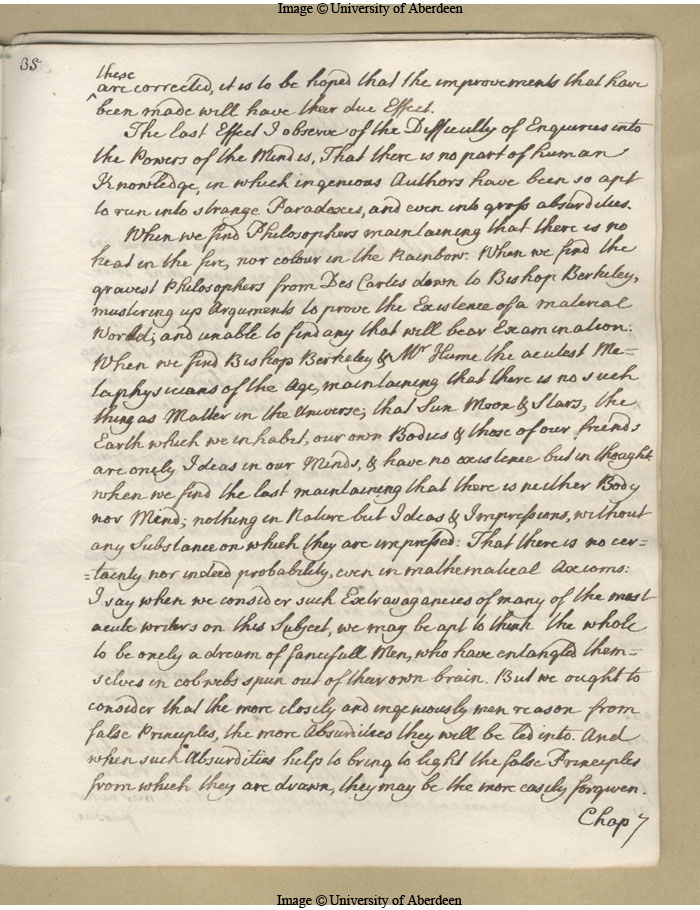 Image © University of Aberdeen
35
these
^are corrected, it is to be hoped that the improvements that have
been made will have their due Effect.
The last Effect I observe of the Difficulty of Enquiries into
the Powers of the Mind is, That there is no part of human
Knowledge, in which ingenious Authors have been so apt
to run into strange Paradoxes, and even into gross absurdities.
When we find Philosophers maintaining that there is no
heat in the fire, nor colour in the Rainbow: When we find the
gravest Philosophers from Des Cartes down to Bishop Berkeley,
mustering up Arguments to prove the Existence of a material
World; and unable to find any that will bear Examination:
When we find Bishop Berkeley & Mr Hume the acutest Me=
taphysicians of the Age, maintaining that there is no such
thing as Matter in the Universe; that Sun Moon & Stars, the
Earth which we inhabit, our own Bodies & those of our friends
are onely Ideas in our Minds, & have no existence but in thought
when we find the last maintaining that there is neither Body
nor Mind; nothing in Nature but Ideas & Impressions, without
any Substance on which they are impressed: That there is no cer=
=tainly nor indeed probability, even in mathematical Axioms:
I say when we consider such Extravagancies of many of the most
acute writers on this Subject, we may be apt to think the whole
to be onely a dream of fancifull Men, who have entangled them=
selves in cobwebs spun out of their own brain. But we ought to
consider that the more closely and ingeniously men reason from
false Principles, the more Absurdities they will be led into. And
when such Absurdities help to bring to light the false Principles
from which they are drawn, they may be the more easily forgiven.
Chap 7
Image © University of Aberdeen